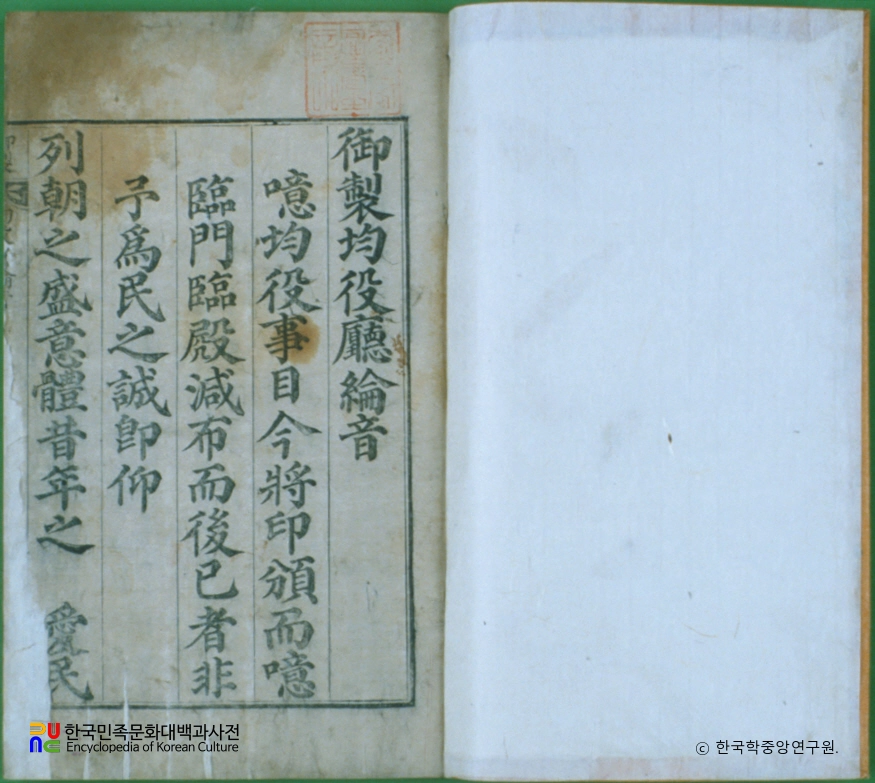 御製均役廳綸音
噫均役事目今將印頒而噫
臨門臨殿減布而後已者非
予爲民之誠卽仰
列朝之盛意體昔年之 愛民
한국민족문화대백과사전
Encyclopedia of Korean Culture
ⓒ 한국학중앙연구원.